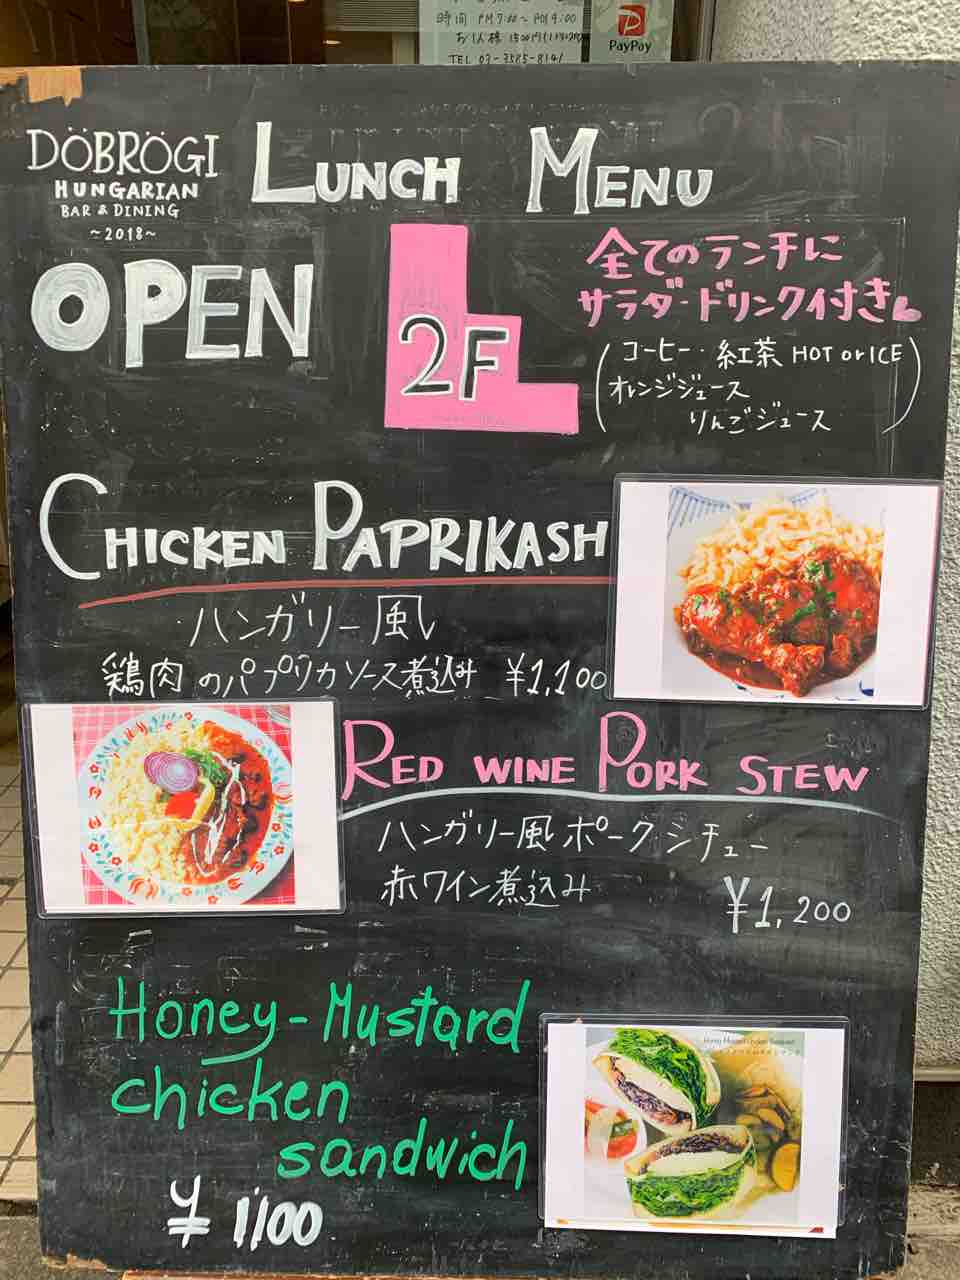 時間 PM 7:00~PM 9:00
TEL 03-3585-8141
PayPay
DÖBRÖGI
HUNGARIAN
BAR & DINING
~2018~
LUNCH MENU
OPEN
2F
全てのランチに
サラダ・ドリンク付き
(コーヒー・紅茶 HOT or ICE
オレンジジュース
りんごジュース)
CHICKEN PAPRIKASH
ハンガリー風
鶏肉のパプリカソース煮込み ¥1,100
RED WINE PORK STEW
ハンガリー風ポークシチュー
赤ワイン煮込み
¥1,200
Honey-Mustard
chicken
sandwich
¥1,100